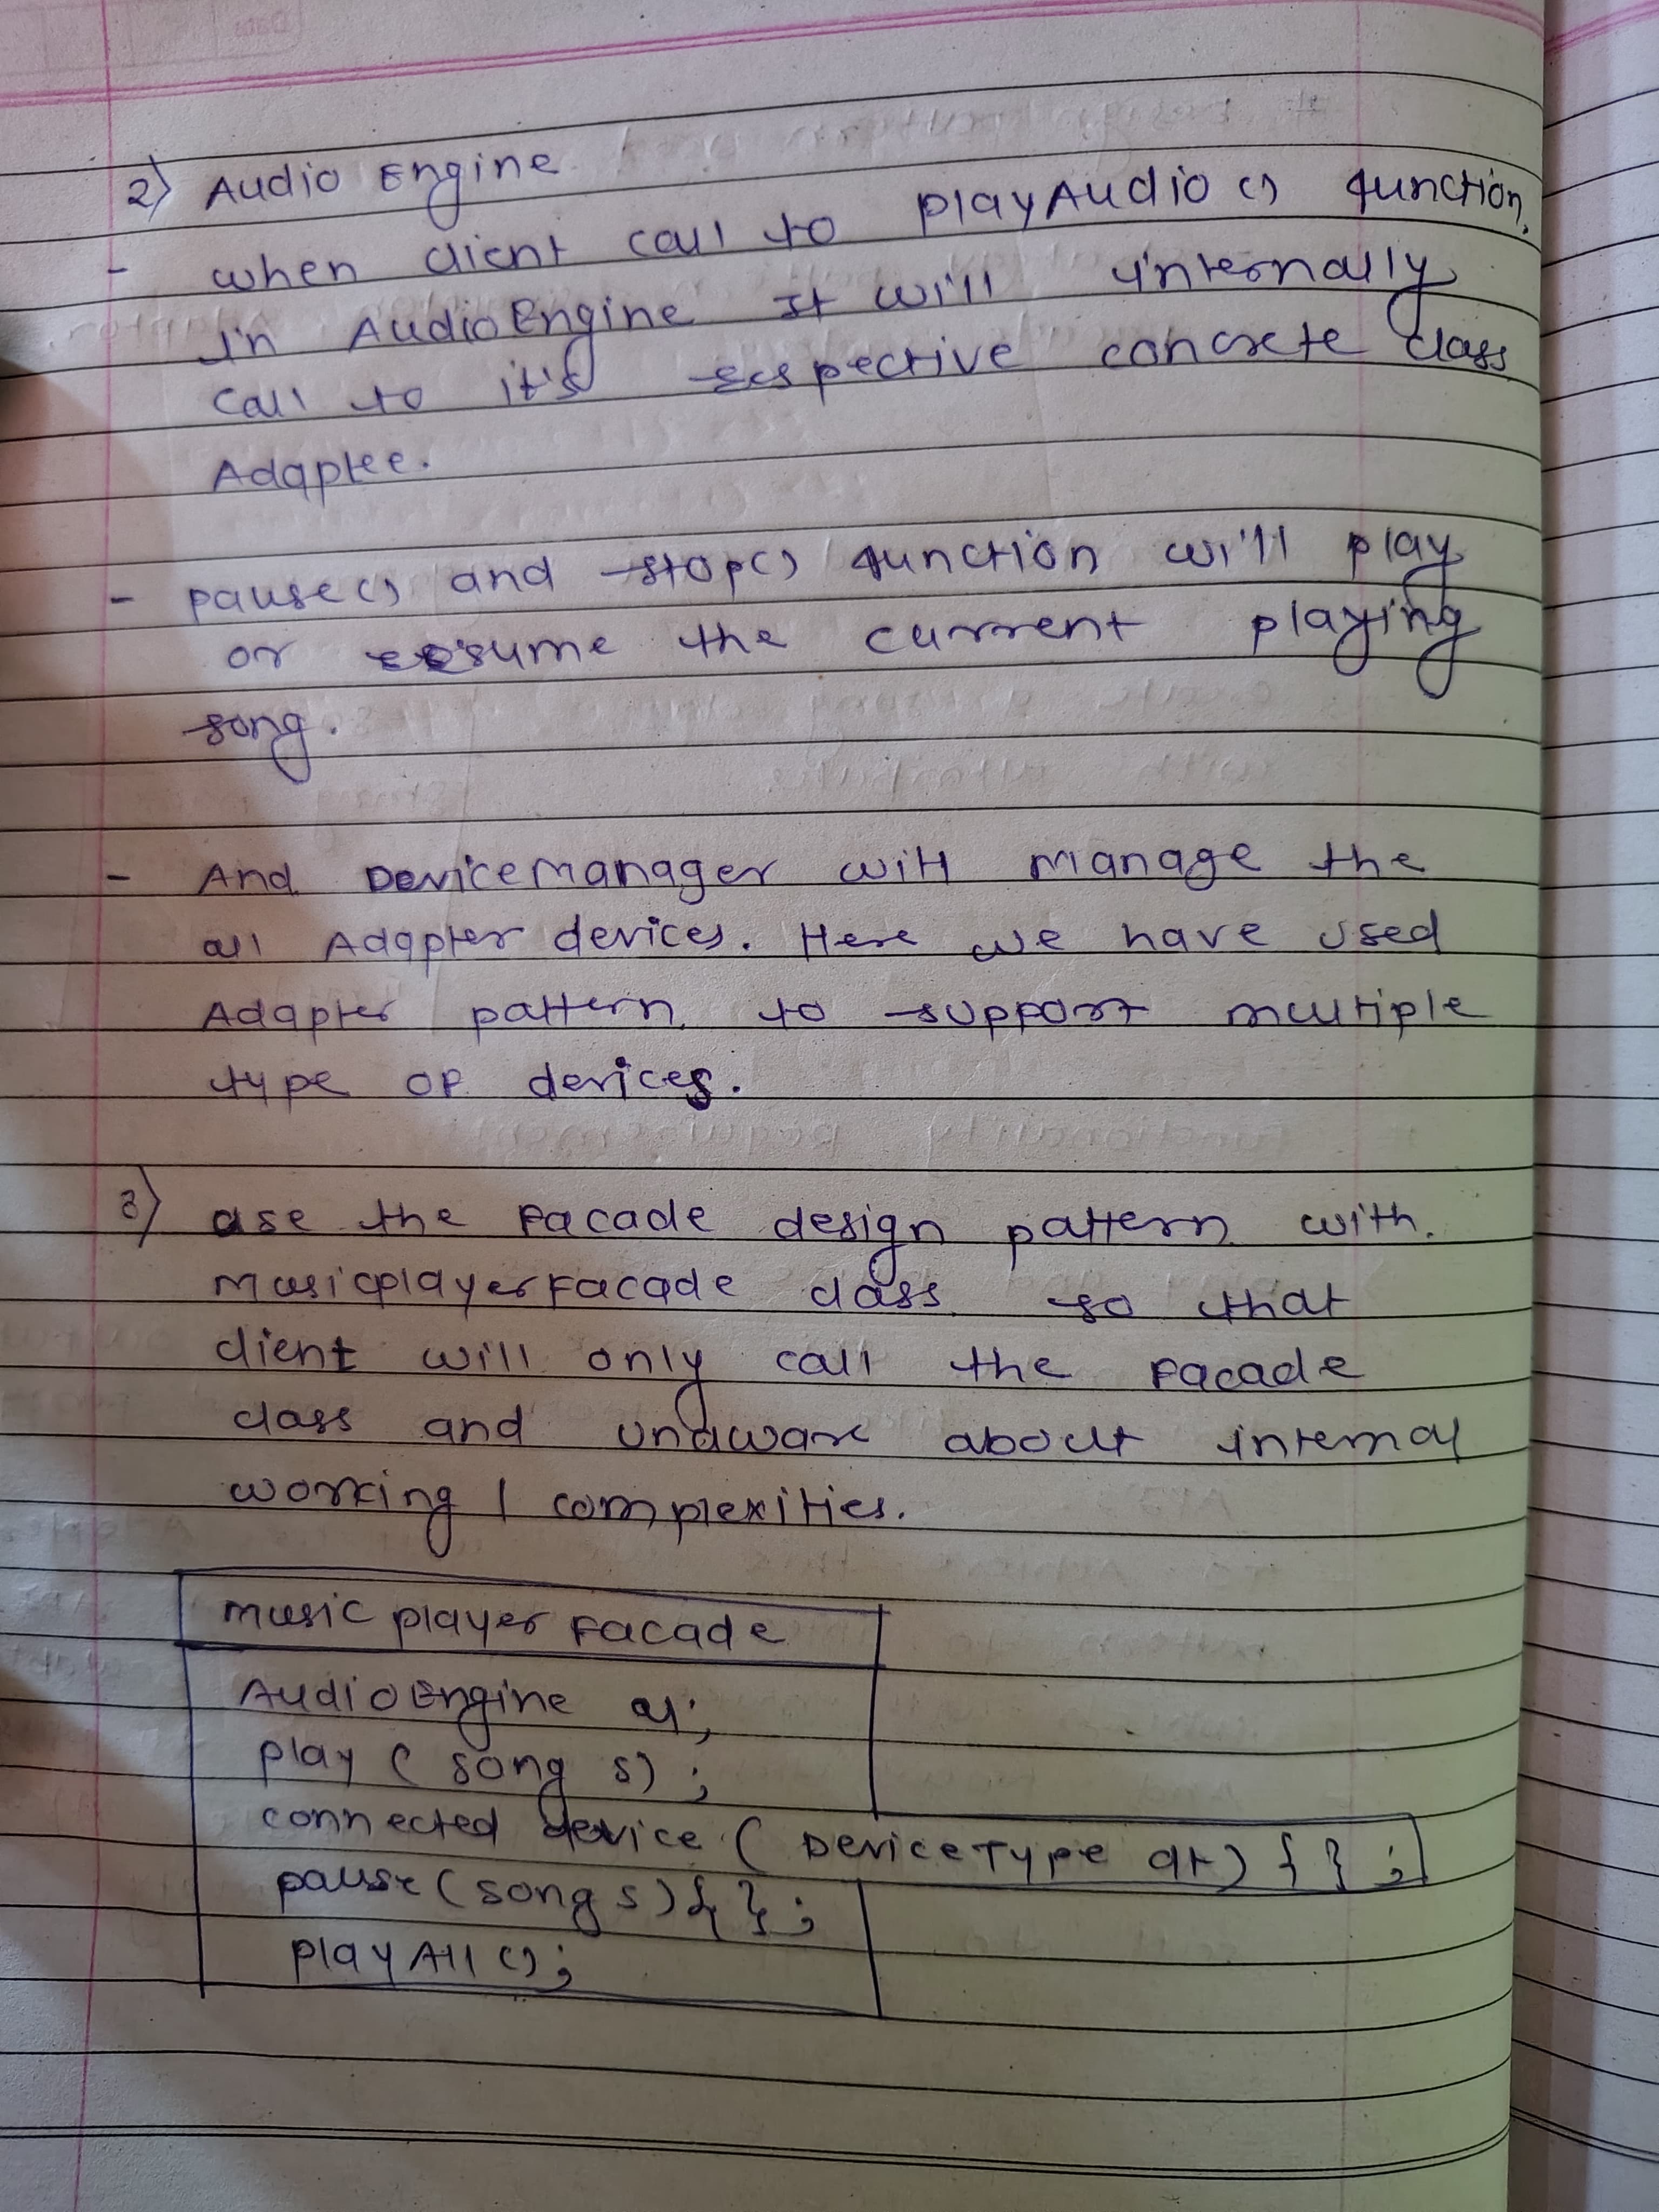 2) Audio Engine
- when client call to playAudio() function,
in AudioEngine It will internally
call to it's respective concrete class
Adaptee.
- pause() and stop() function will play
or resume the current playing
song.
- And DeviceManager will manage the
all Adapter devices. Here we have used
Adapter pattern to support multiple
type of devices.
3) use the Facade design pattern with
musicplayerFacade class so that
client will only call the Facade
class and unaware about internal
working / complexities.
music player Facade
AudioEngine
play ( song s) ;
connected device ( DeviceType dt) { } ;
pause (song s) { } ;
playAll () ;